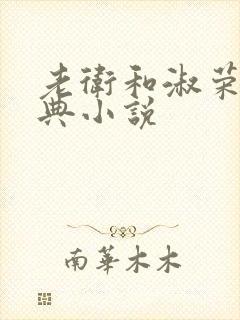 老衛和淑荣
典小説
南華木木